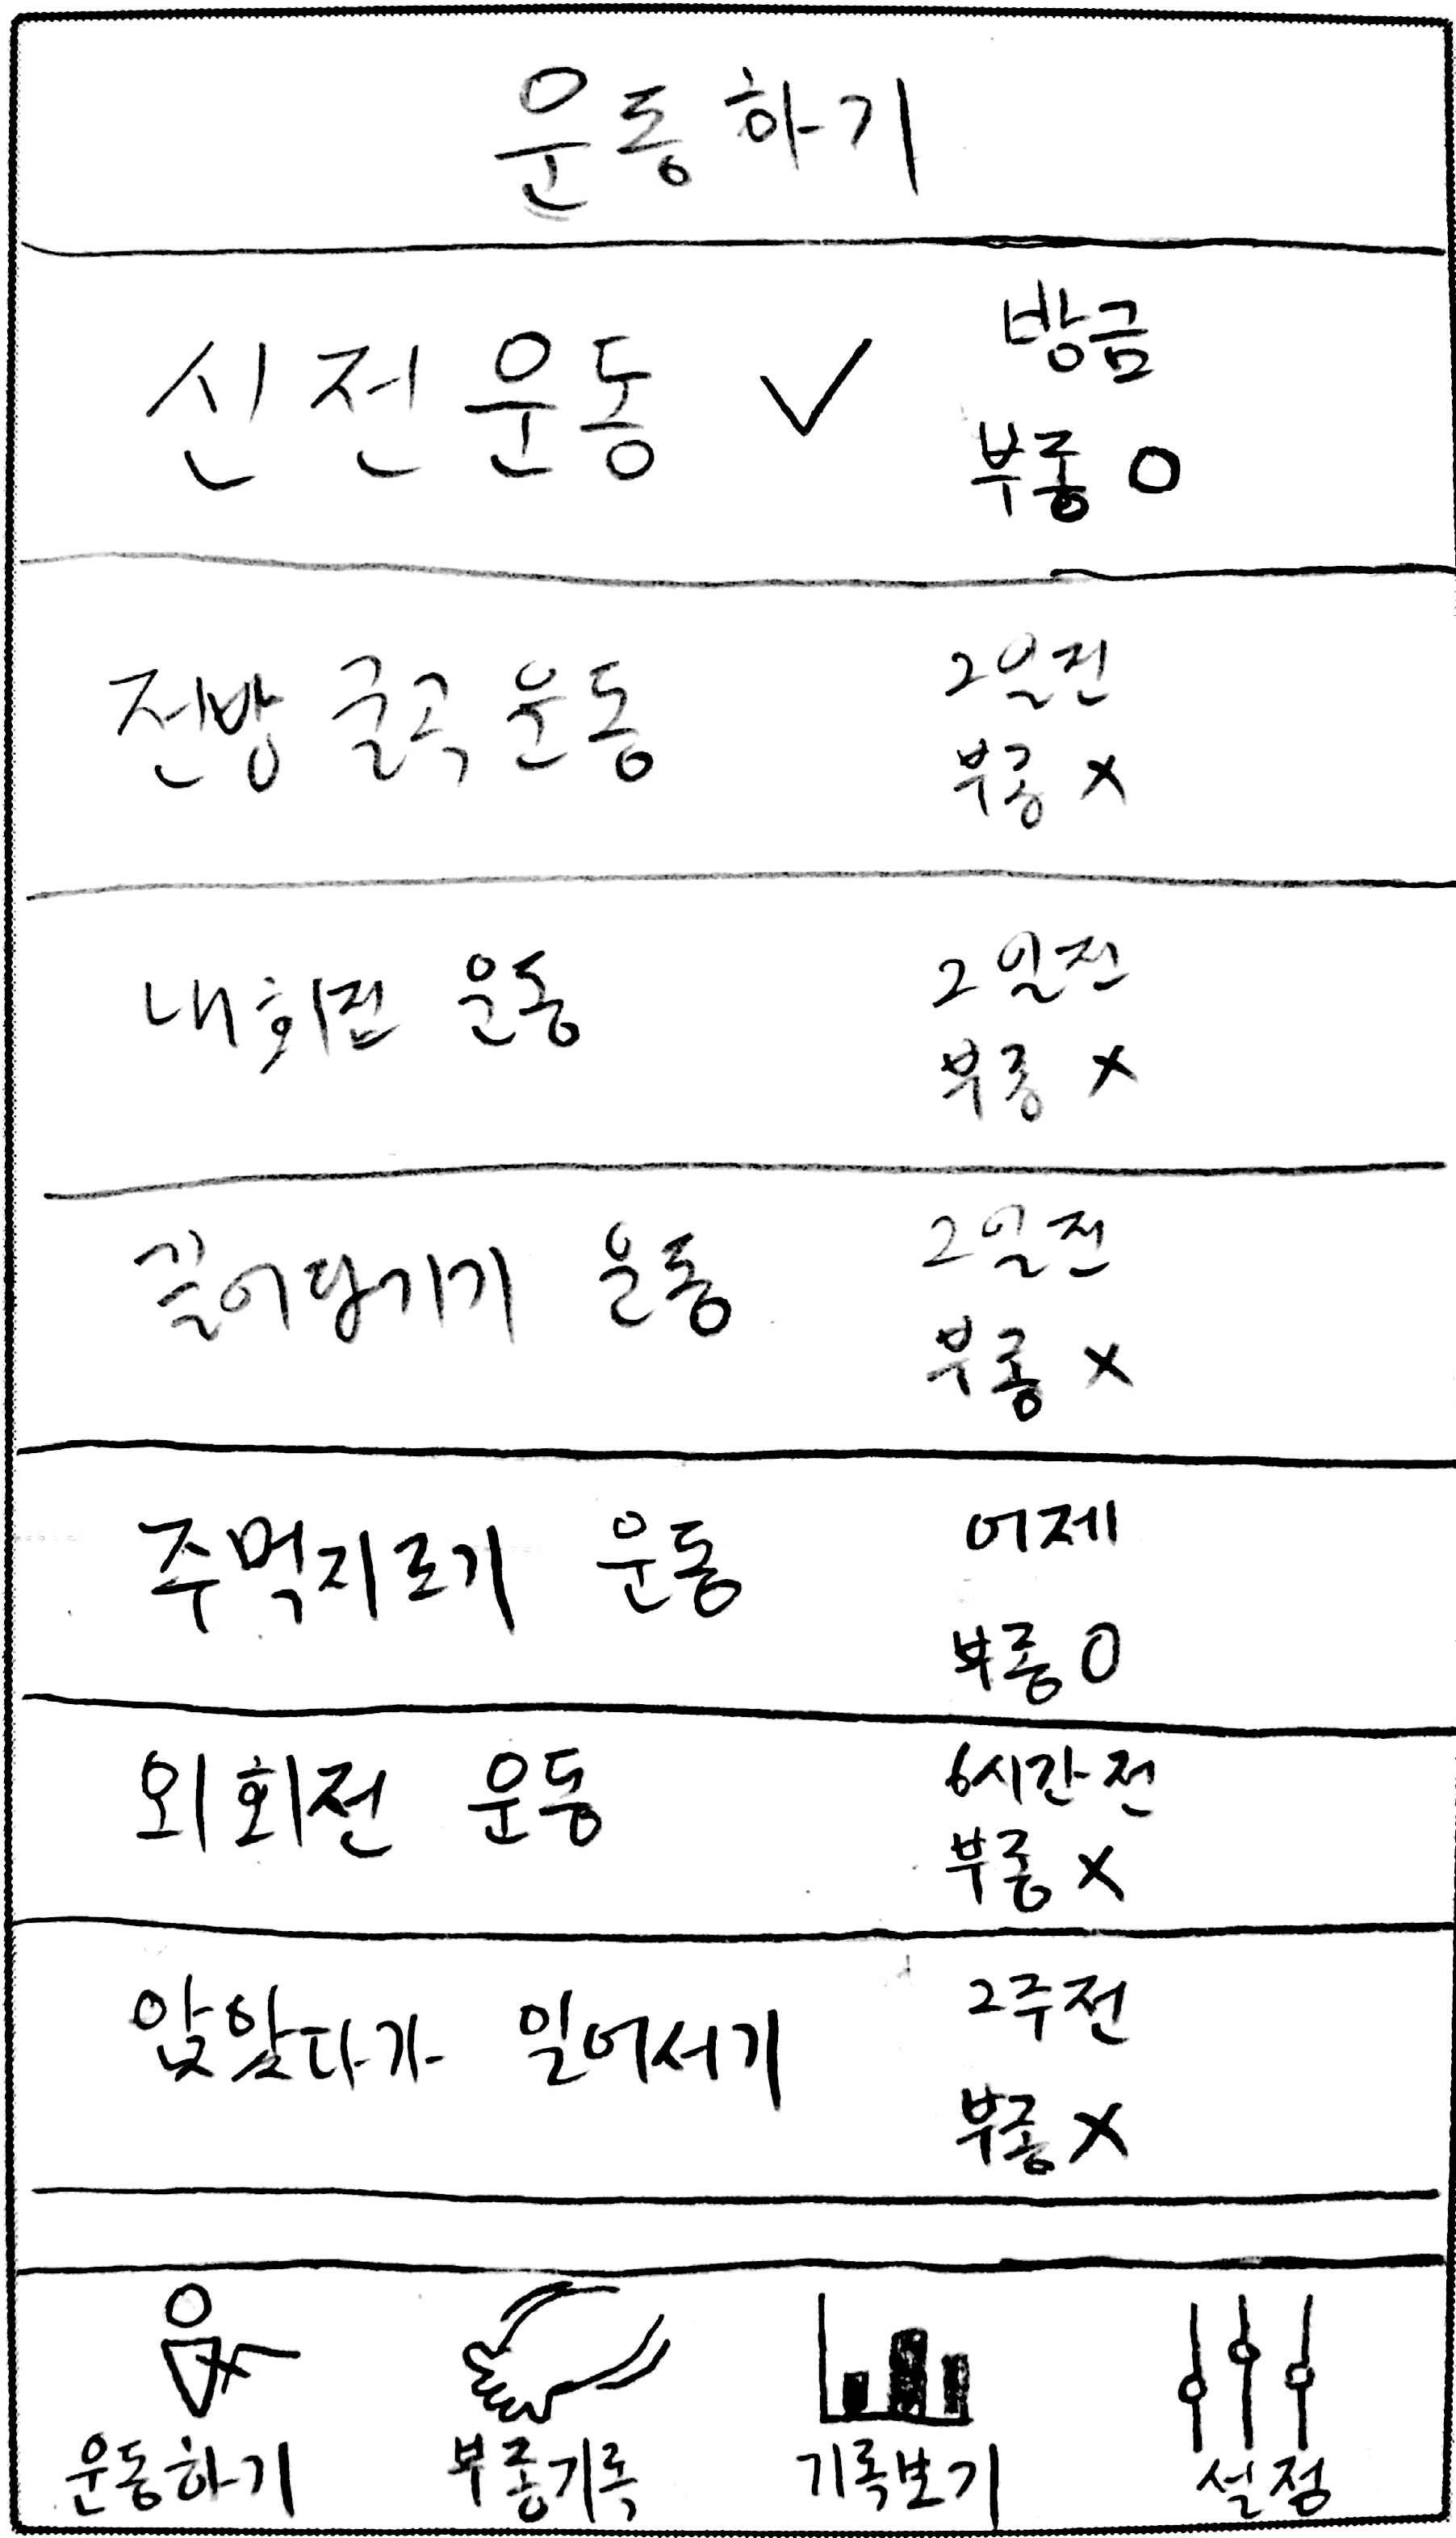 운동하기
신전운동 ✓ 방금
부종 O
전방 굴곡 운동 2일전
부종 X
내회전 운동 2일전
부종 X
끌어당기기 운동 2일전
부종 X
주먹지르기 운동 어제
부종 O
외회전 운동 6시간전
부종 X
앉았다가 일어서기 2주전
부종 X
운동하기 부종기록 기록보기 설정